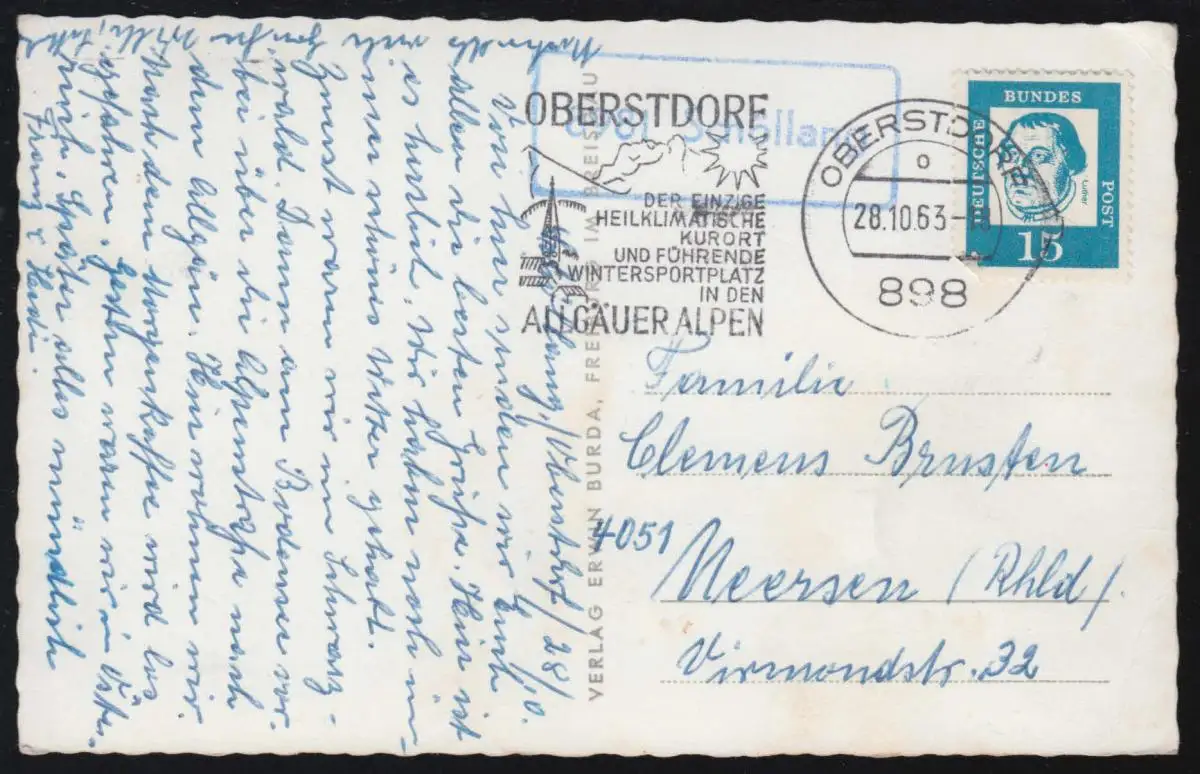 OBERSTDORF
DER EINZIGE
HEILKLIMATISCHE
KURORT
UND FÜHRENDE
WINTERSPORTPLATZ
IN DEN
ALLGÄUER ALPEN
OBERSTDORF
28.10.63
898
DEUTSCHE
BUNDES
POST
Luther
15
Schöllang/Oberstdf/28/10.
Von hier senden wir Euch
Allen die besten Grüße. Hier ist
es herrlich. Wir haben noch im-
mer schönes Wetter gehabt.
Zuerst waren wir im Schwarz-
wald. Dann am Bodensee vor-
bei über die Alpenstraße nach
dem Allgäu. Hier wohnen wir.
Nach dem Morgenkaffee wird los
gefahren. Gestern waren wir in Östr.
reich. Später alles mündlich
Franz & Heidi
VERLAG ERWIN BURDA, FREIBURG IM BREISGAU
Familie
Clemens Brusten
4051
Neersen (Rhld).
Virmondstr. 32